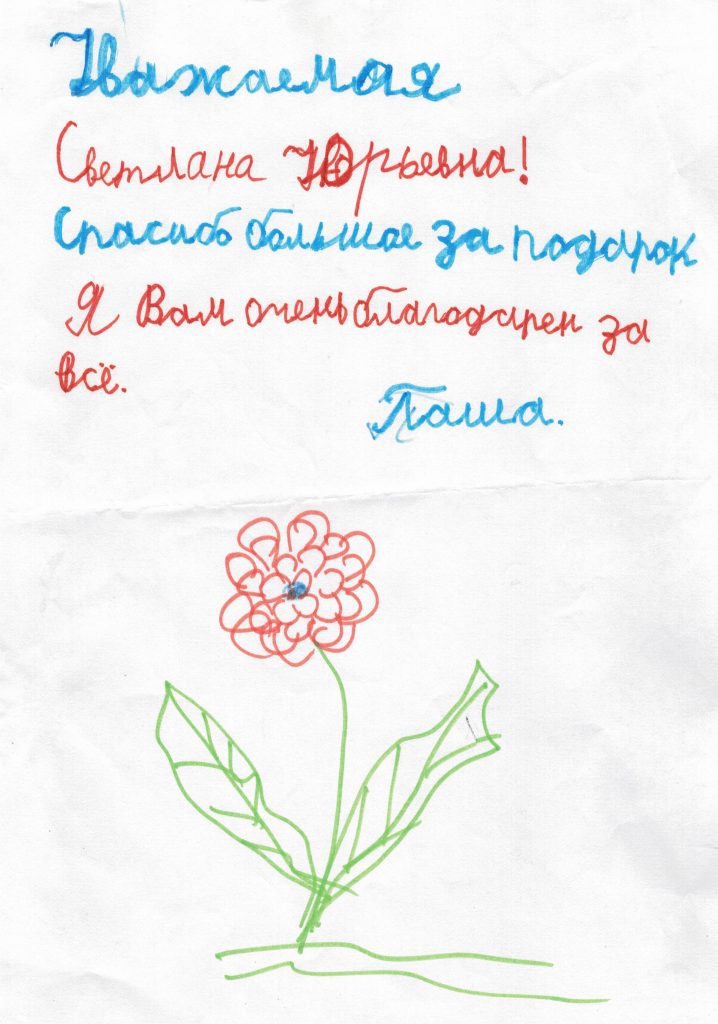 Уважаемая
Светлана Юрьевна!
Спасибо большое за подарок
Я Вам очень благодарен за
всё.
Паша.